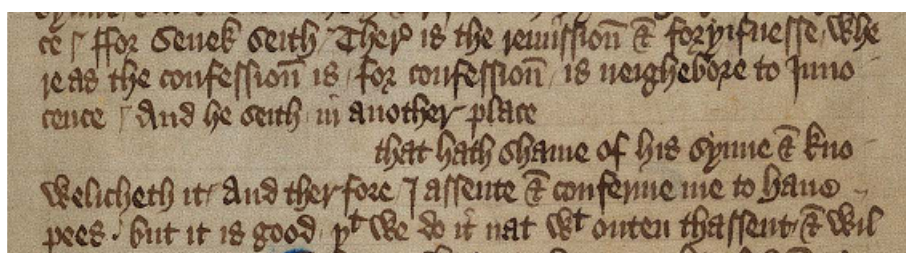 ce / ffor Senek seith / Ther is the remissioñ & foryifnesse / Whe
re as the confessioñ is / for confessioñ / is neighebore to Inno
cence / And he seith in another place
that hath shame of his synne & kno
welicheth it / And therfore I assente & conferme me to haue
pees · but it is good / þᵗ We do it nat Wᵗ outen thassent / & Wil